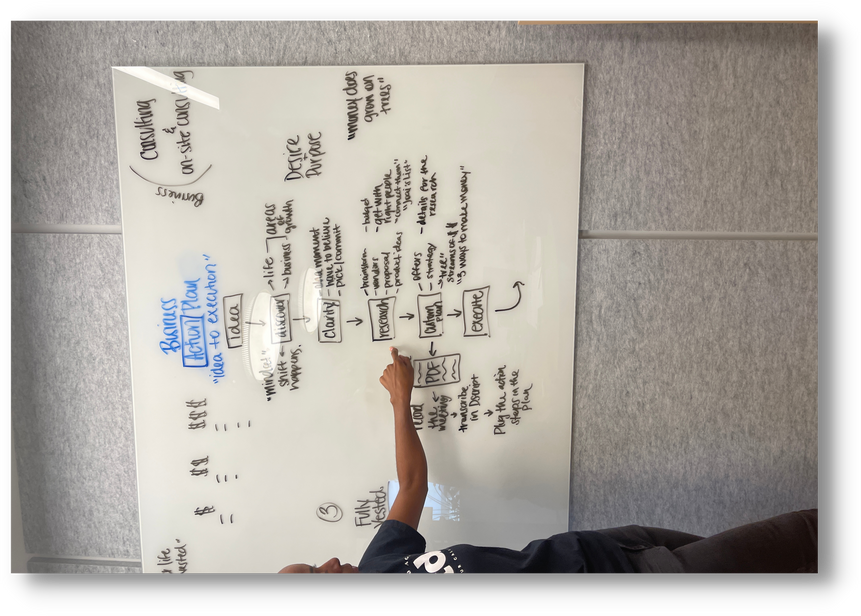 Consulting
&
on-site consulting
Business
"money does
grow on
trees"
Desire
+
Purpose
Business
Action Plan
"idea to execution"
idea
discovery
life
business
areas
of
growth
"mindset"
shift
happens.
clarity
- aha moment
- have to believe
- pick/commit
research
- brainstorm
- vendors
- proposal
- product ideas
- budget
- get with
right people
"connect them"
action
plan
- offers
- strategy
"tree"
streams of $$
"3 ways to make money"
- details for the
research
execute
PDF
read
the
meeting
transcribe
in Dscript
Plug the action
steps in the
plan
$
$$
$$$
3
Fully
Vested
life